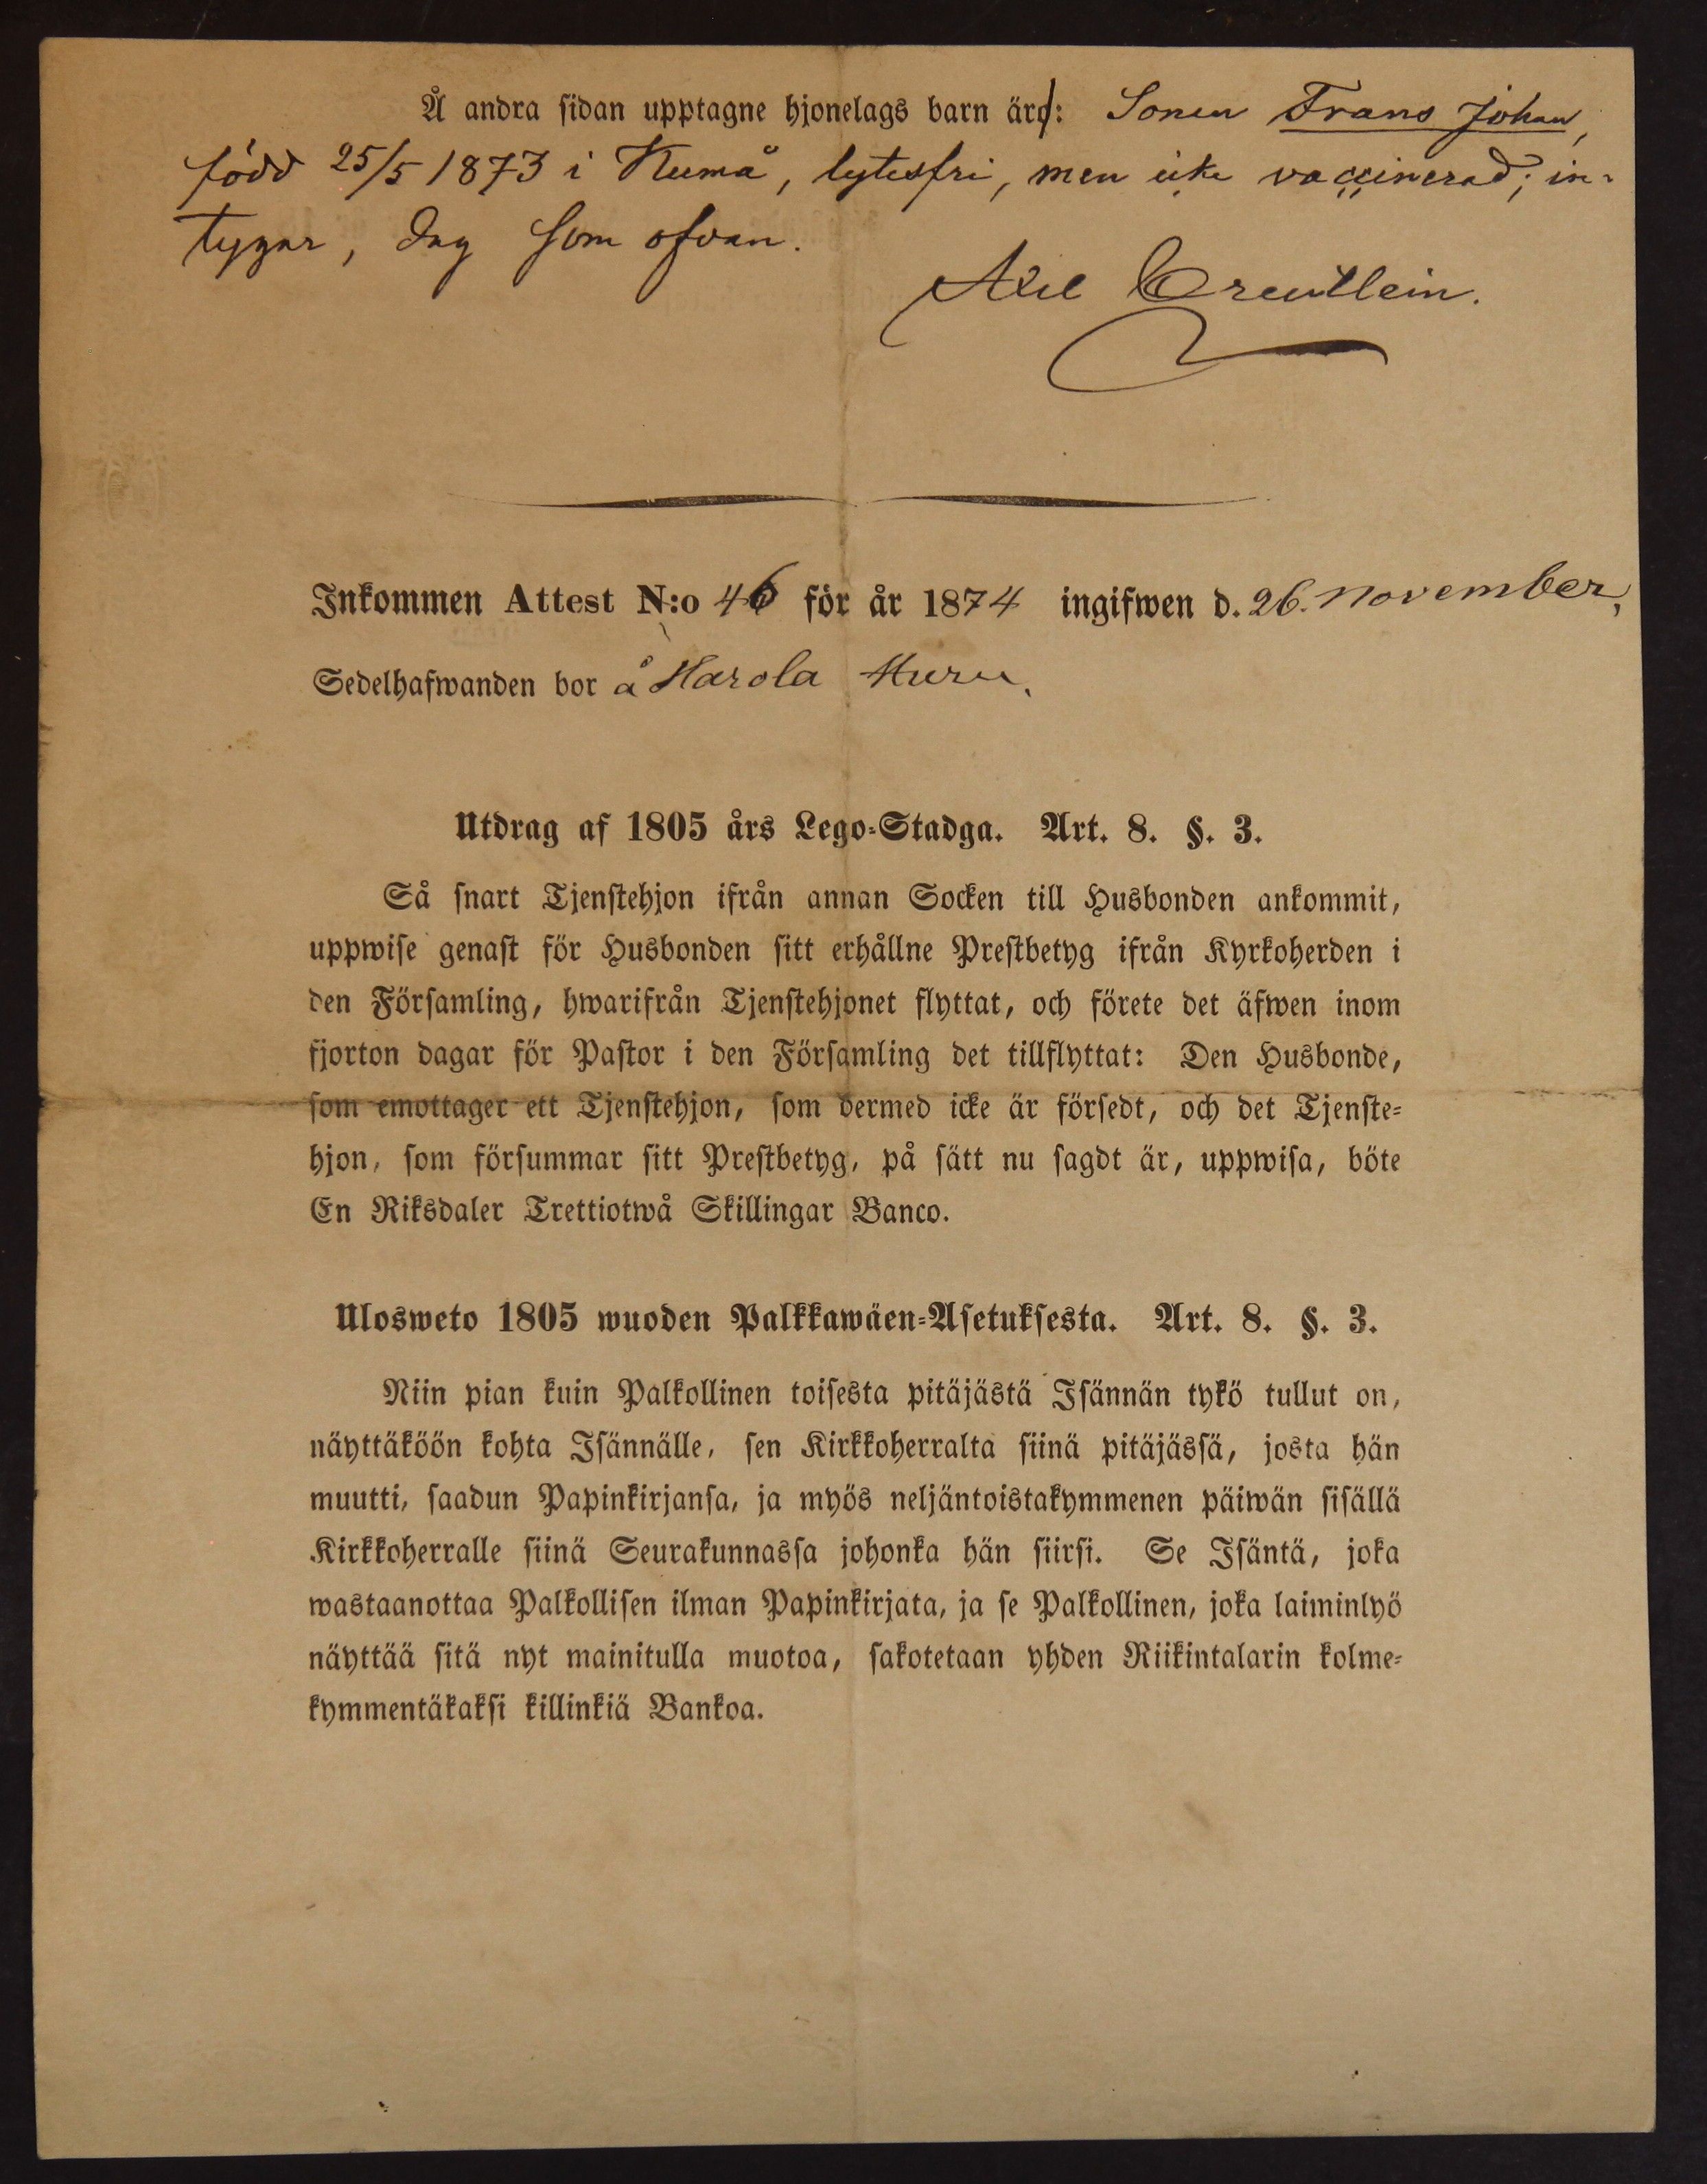 Å andra sidan upptagne hjonelags barn äro: Sonen Frans Johan,
född 25/5 1873 i Kumå, lytesfri, men icke vaccinerad; in-
tygar, dag som ofvan.
Axel Creutlein.
Inkommen Attest N:o 46 för år 1874 ingifwen d. 26. november,
Sedelhafwanden bor å Harola
Utdrag af 1805 års Lego-Stadga. Art. 8. §. 3.
Så snart Tjenstehjon ifrån annan Socken till Husbonden ankommit,
uppwise genast för Husbonden sitt erhållne Prestbetyg ifrån Kyrkoherden i
den Församling, hwarifrån Tjenstehjonet flyttat, och förete det äfwen inom
fjorton dagar för Pastor i den Församling det tillflyttat: Den Husbonde,
som emottager ett Tjenstehjon, som dermed icke är försedt, och det Tjenste-
hjon, som försummar sitt Prestbetyg, på sätt nu sagdt är, uppwisa, böte
En Riksdaler Trettiotwå Skillingar Banco.
Ulosweto 1805 wuoden Palkkawäen-Asetuksesta. Art. 8. §. 3.
Niin pian kuin Palkollinen toisesta pitäjästä Isännän tykö tullut on,
näyttäköön kohta Isännälle, sen Kirkkoherralta siinä pitäjässä, josta hän
muutti, saadun Papinkirjansa, ja myös neljäntoistakymmenen päiwän sisällä
Kirkkoherralle siinä Seurakunnassa johonka hän siirsi. Se Isäntä, joka
wastaanottaa Palkollisen ilman Papinkirjata, ja se Palkollinen, joka laiminlyö
näyttää sitä nyt mainitulla muotoa, sakotetaan yhden Riikintalarin kolme-
kymmentäkaksi killinkiä Bankoa.